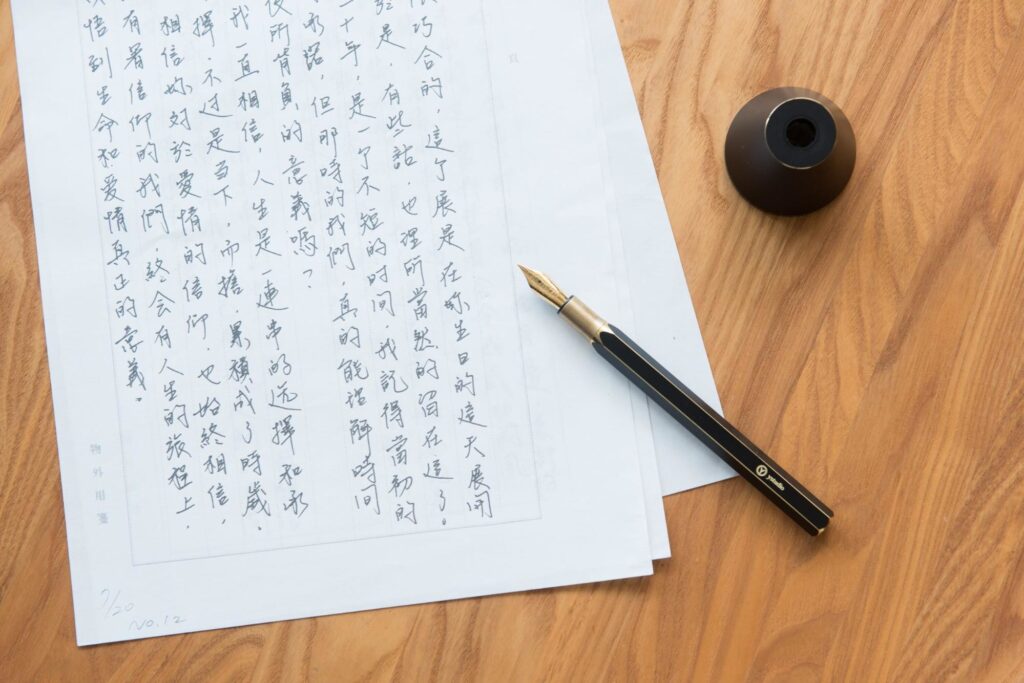 巧合的，這个展是在妳生日的這天展開
是，有些話，也理所當然的留在這了。
十年，是一个不短的时间，我記得當初的
承諾，但那時的我們，真的能理解時間
所背負的意義嗎？
我一直相信，人生是一連串的选擇和承
擇，不过是当下，而擔，累積成了時歲。
相信妳对於愛情的信仰，也始終相信，
有著信仰的我們，終会有人生的旅程上，
悟到生命和爱情真正的意義。
物外用箋
7/20
No.12
ystudio